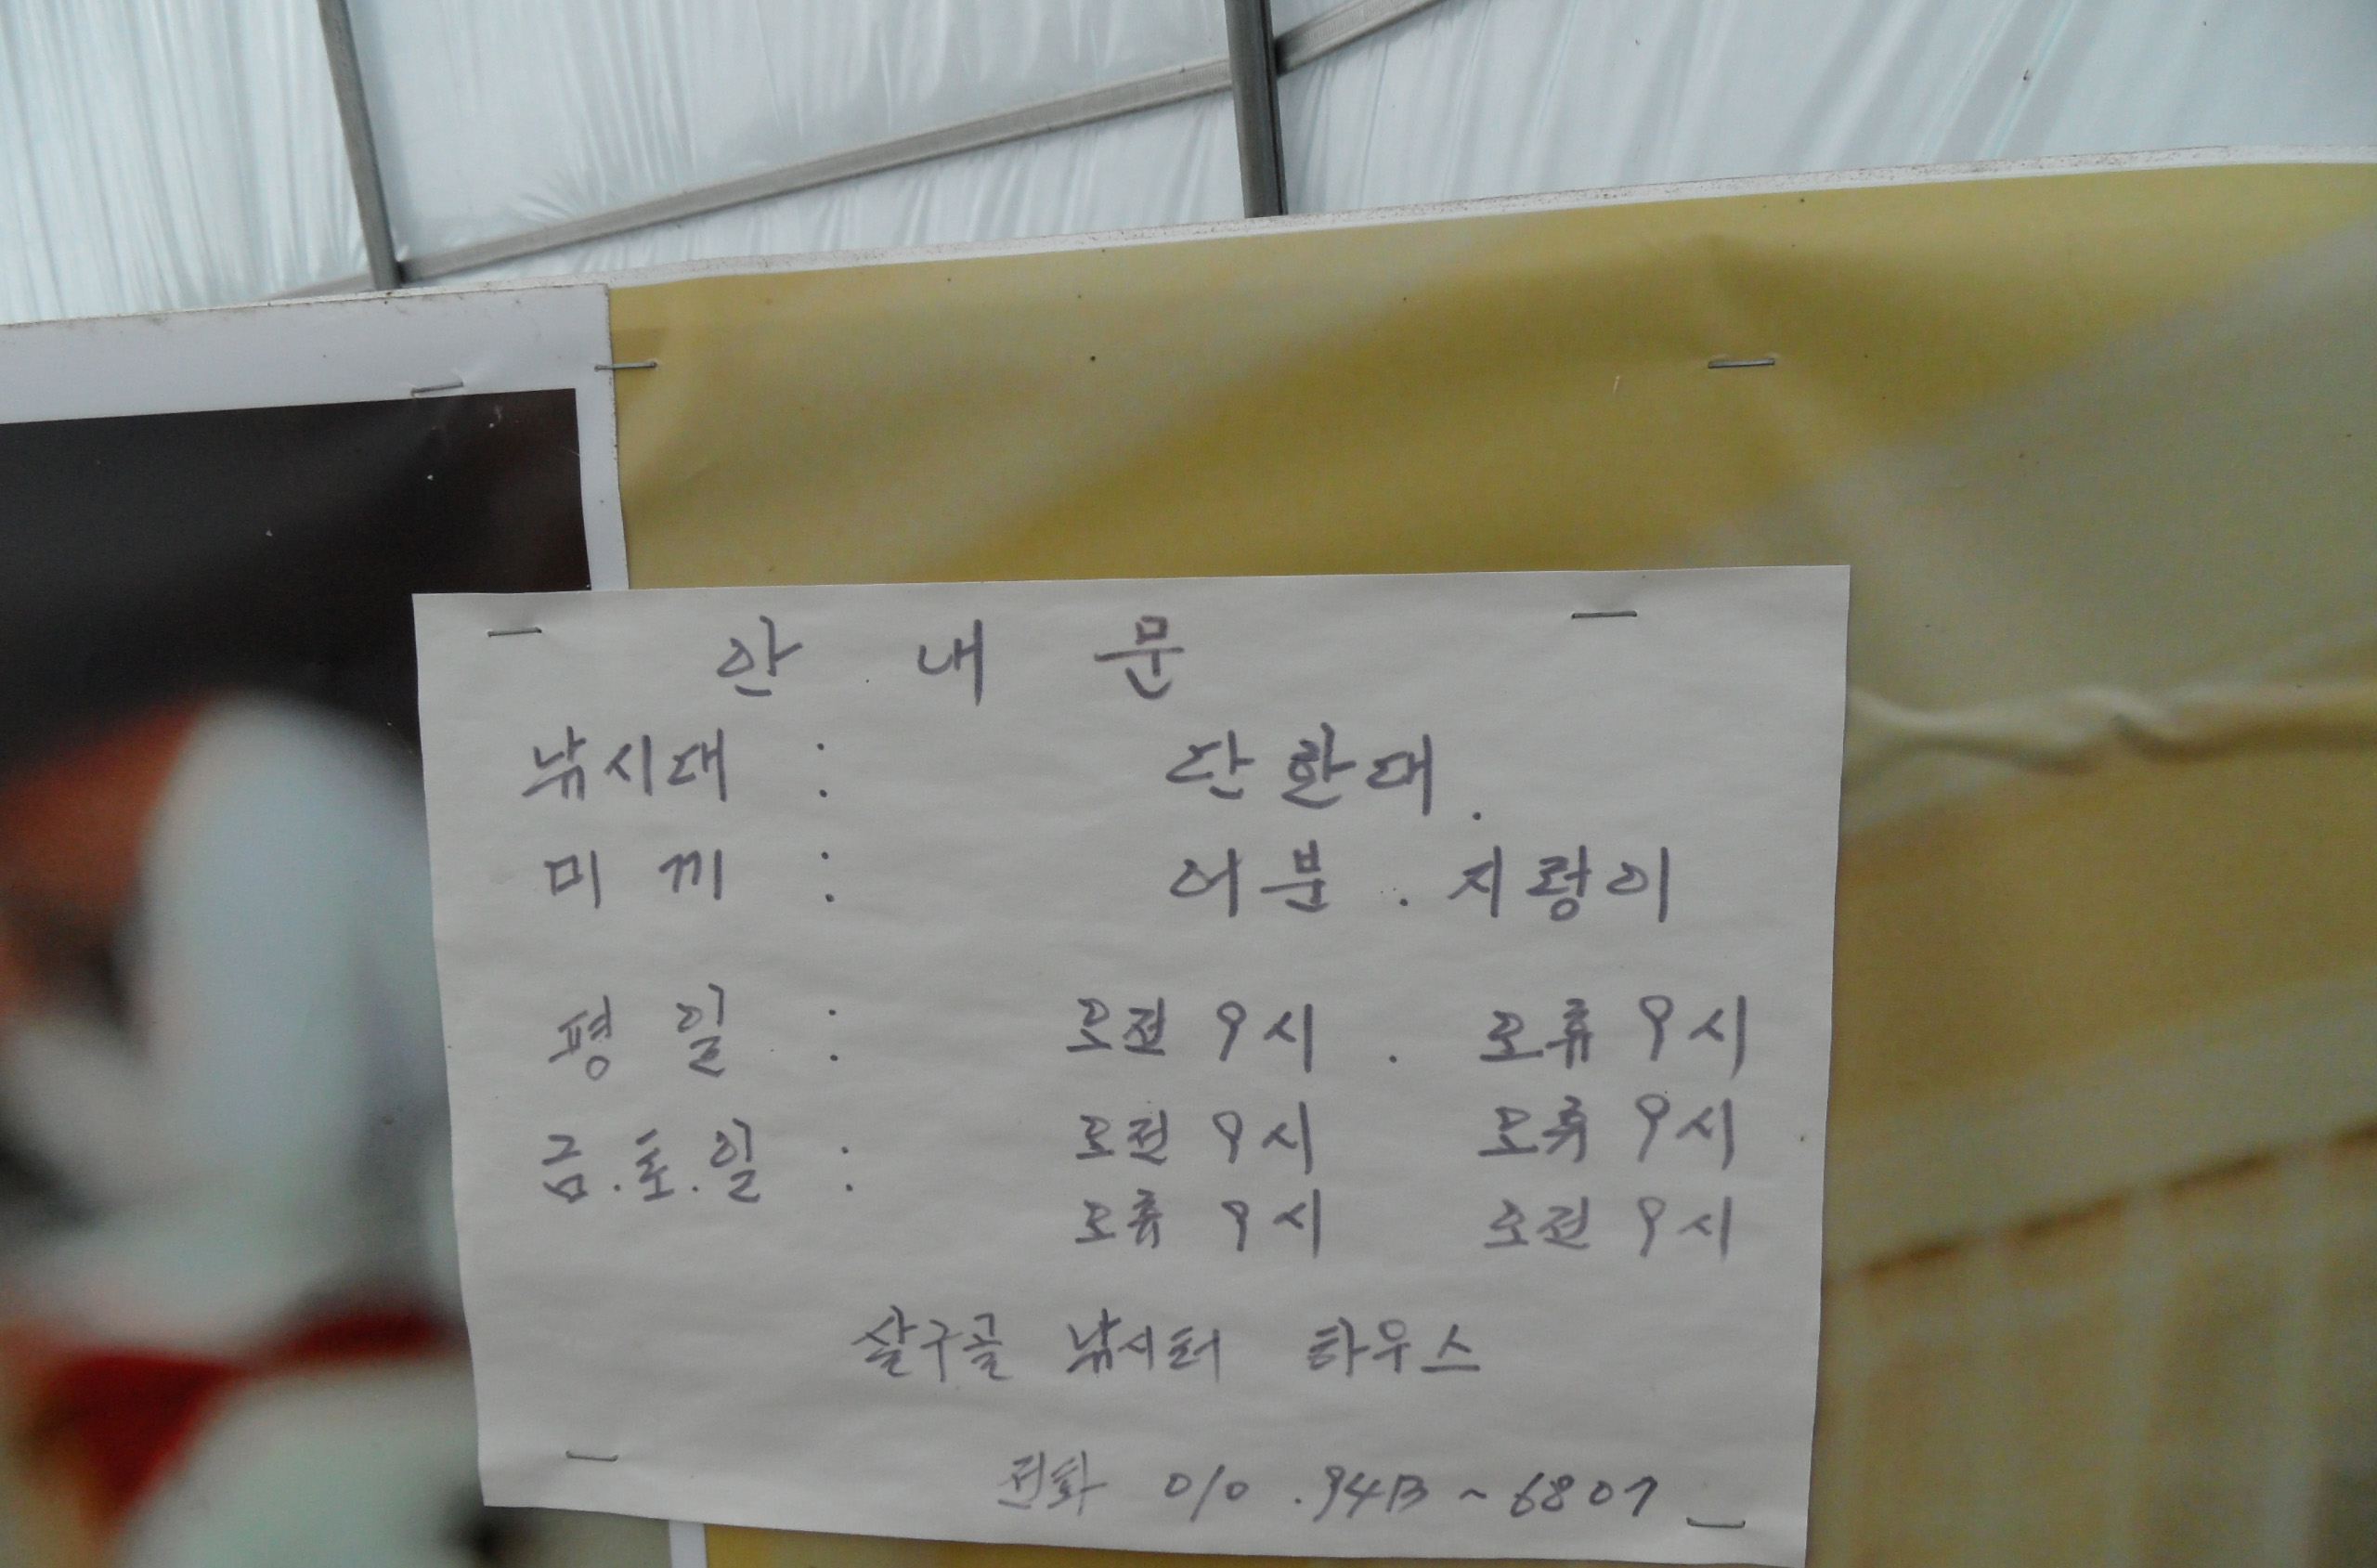 안 내 문
낚시대 : 단 한대.
미 끼 : 어분 . 지렁이
평 일 : 오전 9시 . 오후 9시
금.토.일 : 오전 9시 오후 9시
오후 9시 오전 9시
살구골 낚시터 하우스
전화 010 . ~ 6807